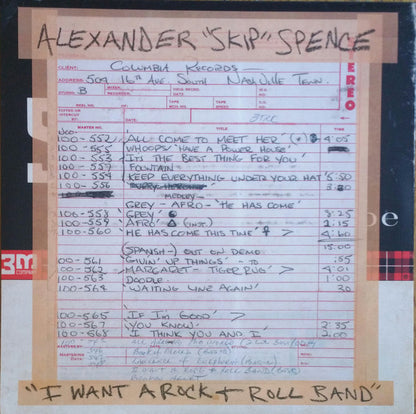 ALEXANDER "SKIP" SPENCE
CLIENT: COLUMBIA RECORDS
ADDRESS: 504 16TH AVE. SOUTH NASHVILLE TENN.
STUDIO: B
STEREO
REEL NO. OF
TAPE SPEED
DATE:
8TRK
MASTER NO. TITLE TIME
100-552 ALL COME TO MEET HER (*) 4:05
100-555 WHOOPS 'HAVE A POWER HOUSE'
100-553 ITS THE BEST THING FOR YOU'
100-557 FOUNTAIN
100-554 KEEP EVERYTHING UNDER YOUR HAT' 5:50
100-556
MEDLEY-
GREY - AFRO - 'HE HAS COME'
106-558 GREY' 8:25
100-559 AFRO (INST.) 2:15
100-560 HE HAS COME THIS TIME 4:60
(SPANISH-) OUT ON DEMO. 15.00
100-561 GIVIN' UP THINGS' - .55
100-562 MARGARET - TIGER RUG' > 4:01
100-563 DOODLE 1:00
100-564 WAITING LINE AGAIN' 30
100-565 IF I'M GOOD' >
100-567 YOU KNOW' 2:35
100-568 I THINK YOU AND I 2:00
3M
COMPANY
"I WANT A ROCK + ROLL BAND"